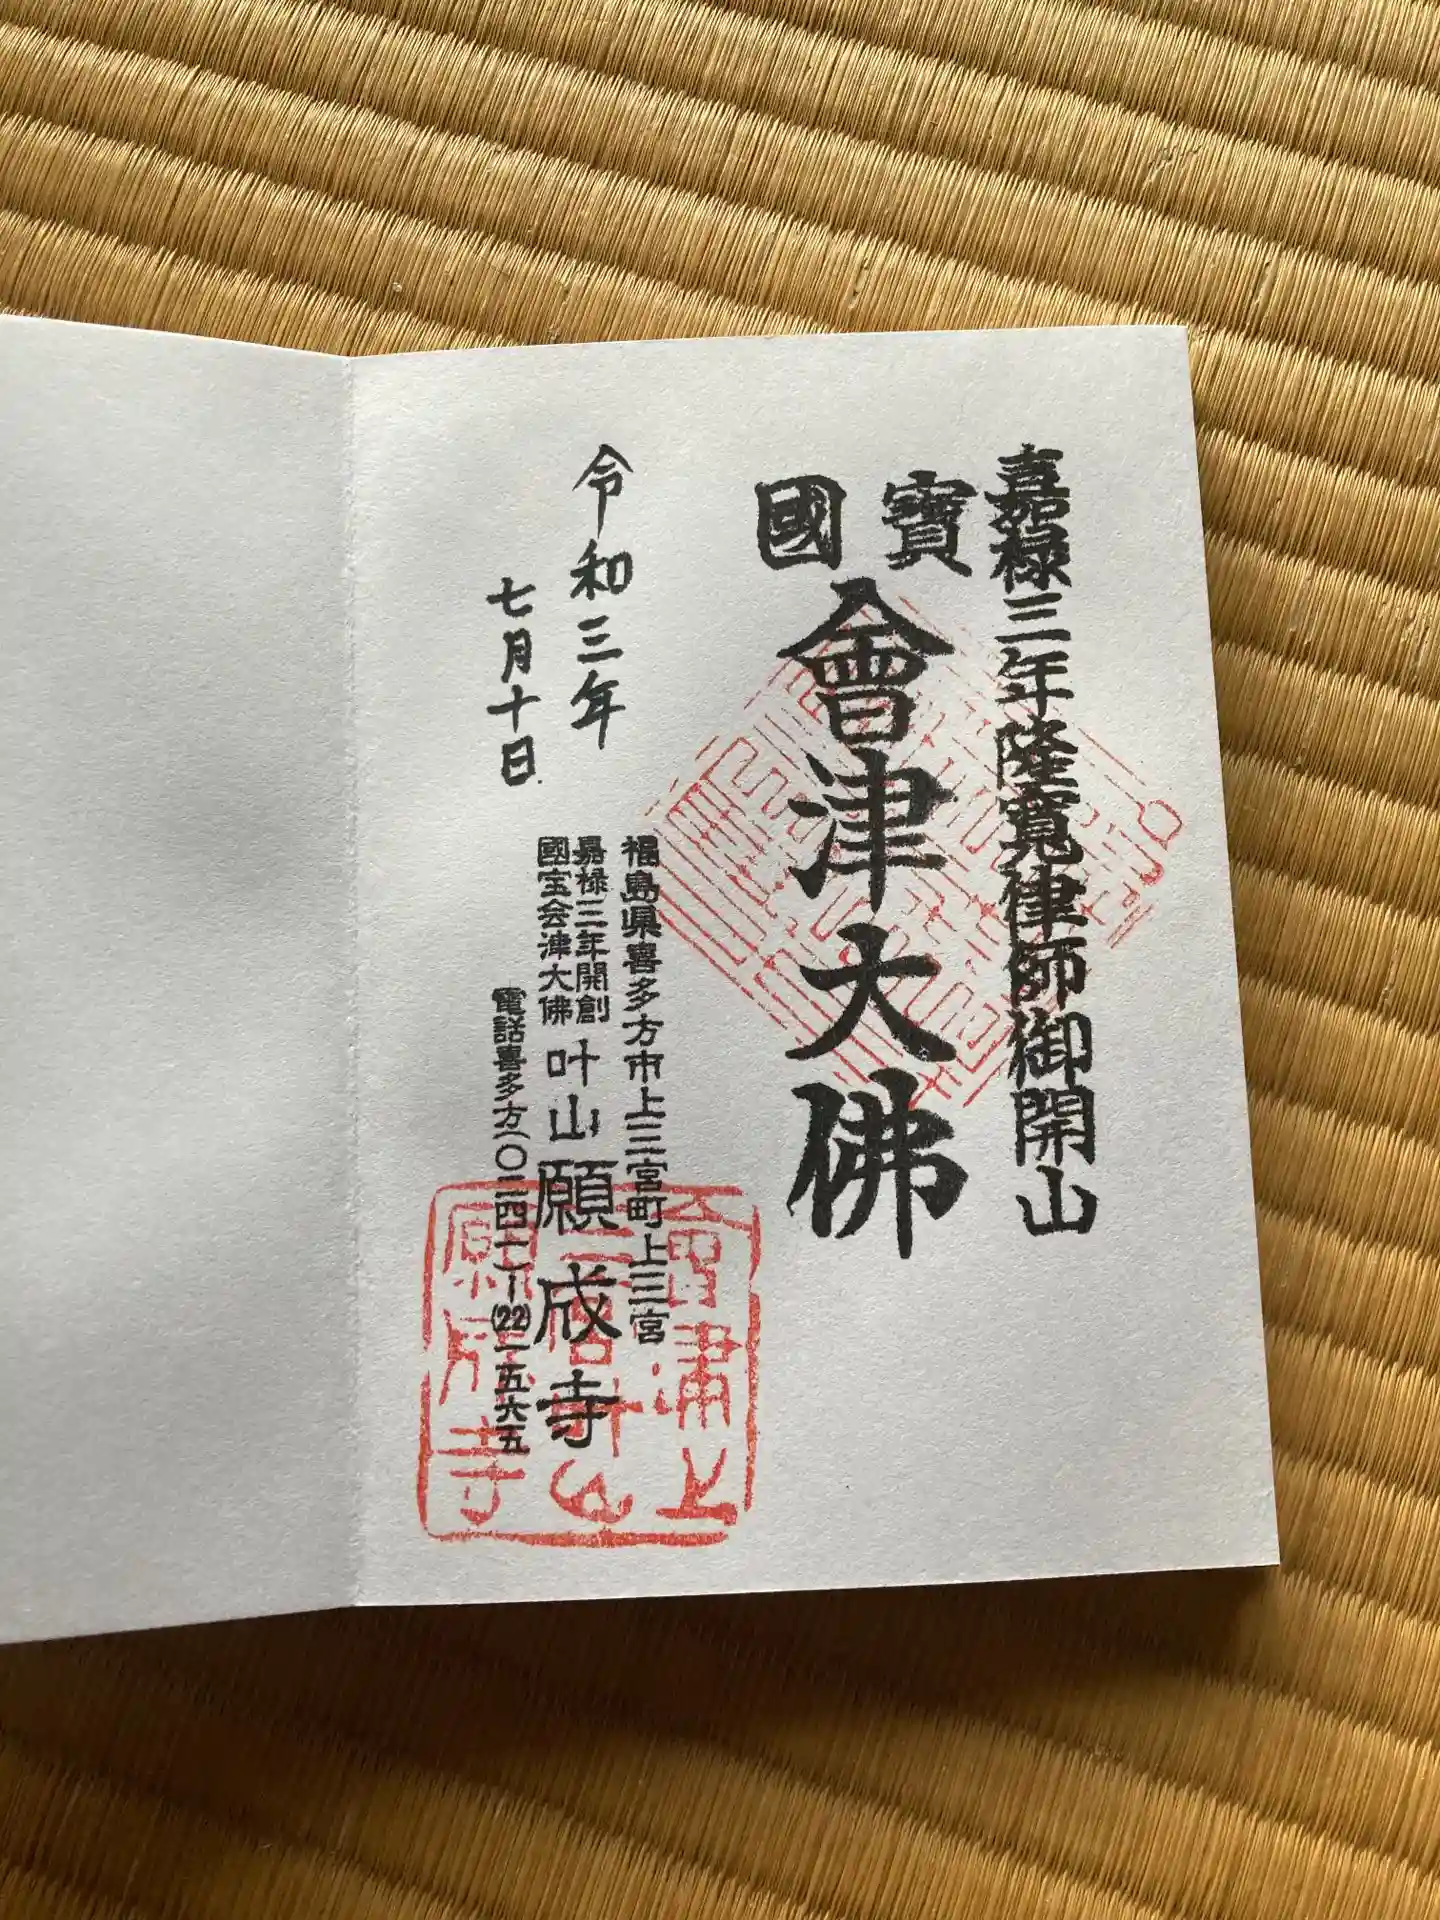 嘉禄三年隆寛律師御開山
國寶
會津大佛
令和三年
七月十日
福島県喜多方市上三宮町上三宮
嘉禄三年開創
國宝会津大佛
叶山願成寺
電話喜多方(〇二四一)-(22)一五六五
會津上
三宮叶山
願成寺